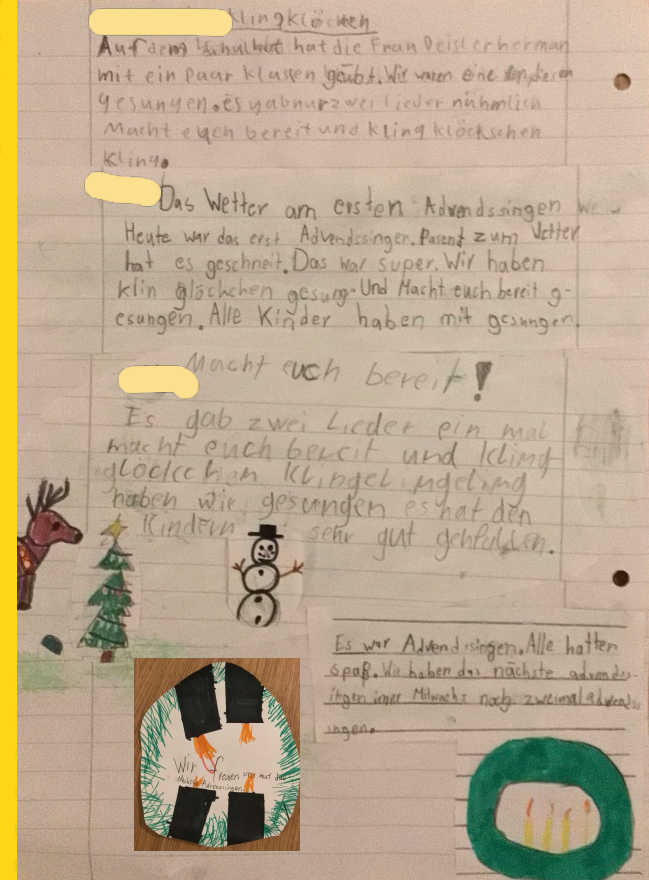 klingklöcken
Auf dem Schulhof hat die Frau
mit ein paar klassen geübt. Wir waren eine
gesungen. es gab nur zwei lieder nühmlich
Macht eyen bereit und kling klöckschen
Kling.
Das Wetter am ersten Advendssingen
Heute war das erst Advendssinger. Pasend zum Wetter
hat es geschneit. Das war super. Wir haben
klin glöckchen gesung. Und Macht euch bereit g-
esungen. Alle Kinder haben mit gesungen.
Macht euch bereit!
Es gab zwei Lieder ein mal
macht euch bereit und kling
glöckchen klingelingeling
haben wir gesungen es hat den
Kindern sehr gut gehfallen.
Es war Advendsingen. Alle hatten
spaß. Wir haben das nächste advends-
ingen imer Mitwochs noch zweimal advends
ingen.
Wir freuen uns auf das
Nächste Advendssingen